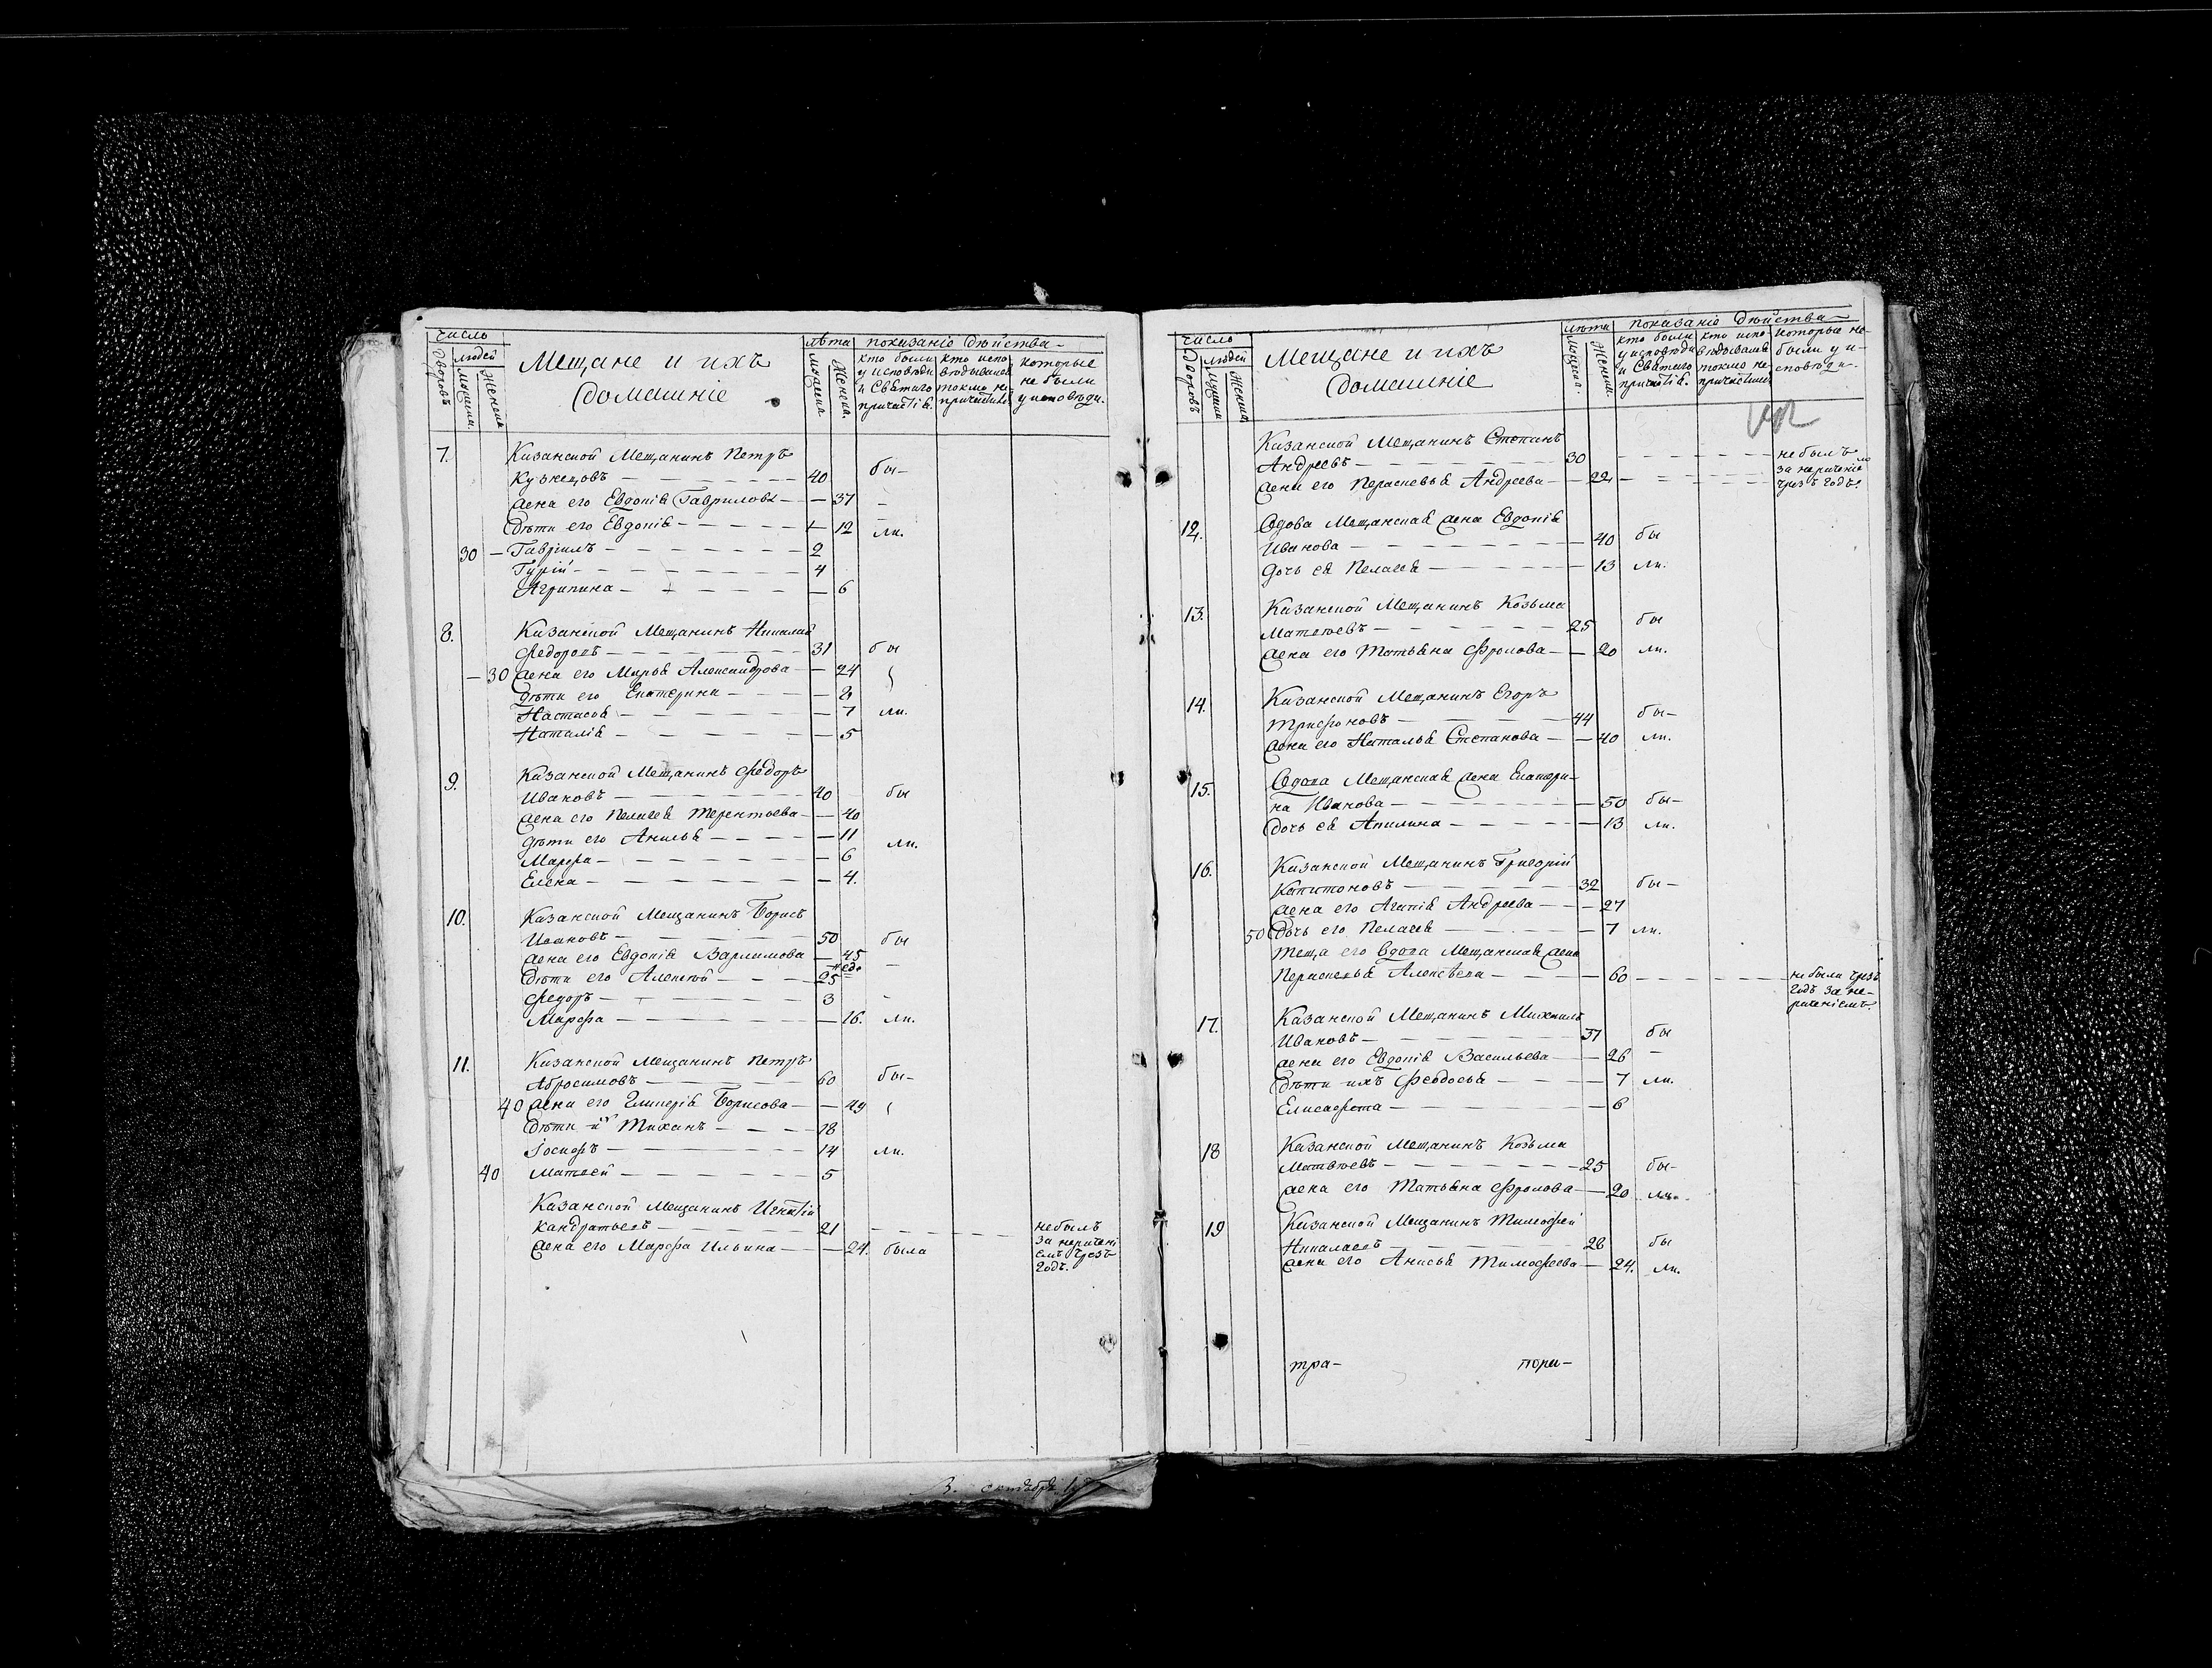 число
дворовъ
людей
мущин.
женска
Мещане и ихъ
домашніе
лѣта
мущин.
Женска.
показаніе дѣйства
кто были у исповѣди и святаго причастія.
кто исповѣдывался токмо не причастился
которые не были у исповѣди.
7. Казанской Мещанинъ Петръ
Кузнецовъ 40 бы-
жена его Евдокія Гаврилова 37
дѣти его Евдокія 12 ли.
30 Гаврилъ 2
Гурій 4
Агрипина 6
8. Казанской Мещанинъ Николай
Федоровъ 31 бы
30 жена его Марья Александрова 24
дѣти его Екатерина 8
Настасья 7 ли.
Наталія 5
9. Казанской Мещанинъ Федоръ
Ивановъ 40 бы
жена его Пелагея Терентьева 40
дѣти его 11 ли.
Марфа 6
Елена 4.
10. Казанской Мещанинъ Борисъ
Ивановъ 50 бы
жена его Евдокія Варламова 45
дѣти его Алексѣй 25
Федоръ 3
Марфа 16. ли.
11. Казанской Мещанинъ Петръ
Абросимовъ 60 бы-
40 жена его Гликерія Борисова 49
дѣти их Тиханъ 18
Іосифъ 14 ли.
40 Матвей 5
Казанской Мещанинъ Игнатій
Кандратьевъ 21 небылъ
жена его Марфа Ильина 24. была за нерачені
емъ чрезъ
годъ.
3. октября
число
дворовъ
людей
мущин.
женска
Мещане и ихъ
домашніе
лѣта
мущина.
Женска.
показаніе дѣйства
кто были у исповѣди и святаго причастія.
кто исповѣдывался токмо не причастился
которые не были у исповѣди.
Казанской Мещанинъ Степанъ
Андреевъ 30 небылъ
жена его Парасковья Андреева 22 за нераченіемъ
чрезъ годъ.
12. Вдова Мещанская жена Евдокія
Иванова 40 бы
дочь ея Пелагея 13 ли.
13. Казанской Мещанинъ Козьма
Матвеевъ 25 бы
жена его Татьяна Фролова 20 ли.
14. Казанской Мещанинъ Егоръ
Трифоновъ 44 бы-
жена его Наталья Степанова 40 ли.
15. Вдова Мещанская жена Екатери-
на Иванова 50 бы-
дочь ея Акилина 13 ли.
16. Казанской Мещанинъ Григорій
Капитоновъ 32 бы-
жена его Агапія Андреева 27
50 дочь его Пелагея 7 ли.
теща его вдова Мещанская жена
Парасковья Алексѣева 60 не были чрезъ
годъ за не-
раченіемъ.
17. Казанской Мещанинъ Михаилъ
Ивановъ 37 бы
жена его Евдокія Васильева 26
дѣти ихъ Феодосья 7 ли.
Елисафета 6
18 Казанской Мещанинъ Козьма
Матвѣевъ 25 бы-
жена его Татьяна Фролова 20 ли.
19 Казанской Мещанинъ Тимофей
Николаевъ 28 бы
жена его Анисья Тимофеева 24. ли.